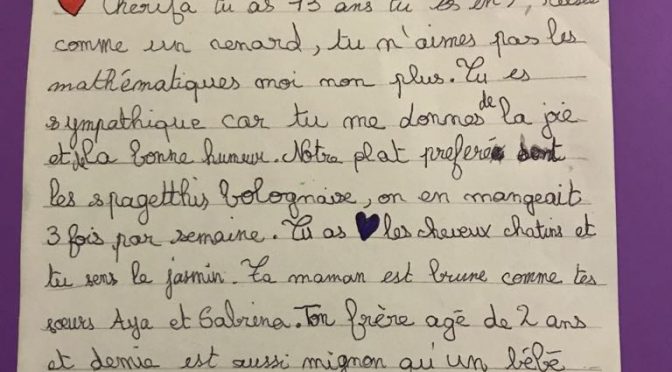 Cherifa tu as 13 ans tu es en 5, rusée
comme un renard, tu n'aimes pas les
mathématiques moi non plus. Tu es
sympathique car tu me donnes de la joie
et de la bonne humeur. Notre plat preferé sont
les spagetthis bolognaise, on en mangeait
3 fois par semaine. Tu as les cheveux chatins et
tu sens le jasmin. Ta maman est brune comme tes
sœurs Aya et Sabrina. Ton frère agé de 2 ans
et demie est aussi mignon qu'un bébé